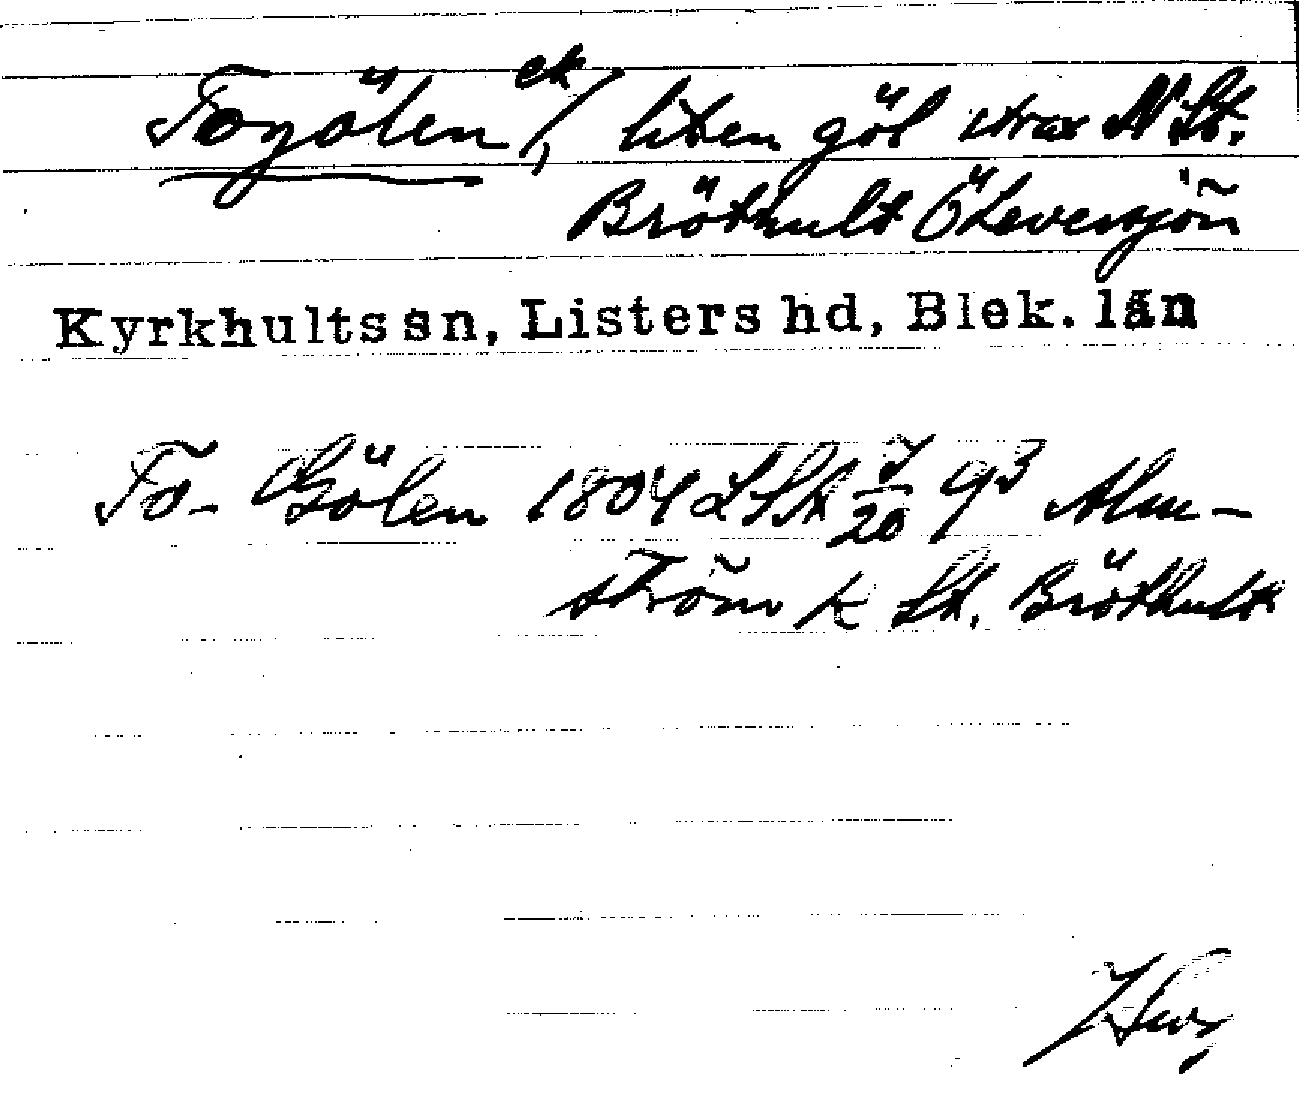 Togölen ek/, liten göl strax N St.
Bröthult Ö Leversjön
Kyrkhults sn, Listers hd, Blek. län
To- Gölen 1804 LSA 7/20 93 Alm-
ström k St. Bröthult